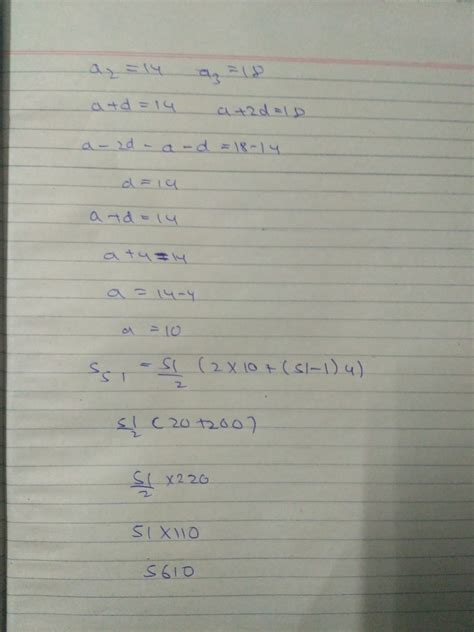 a2 = 14 a3 = 18
a+d = 14 a+2d = 18
a - 2d - a - d = 18-14
d = 14
a+d = 14
a+4 = 14
a = 14-4
a = 10
S51 = 51/2 (2×10+(51-1)4)
51/2 (20+200)
51/2 ×220
51×110
5610